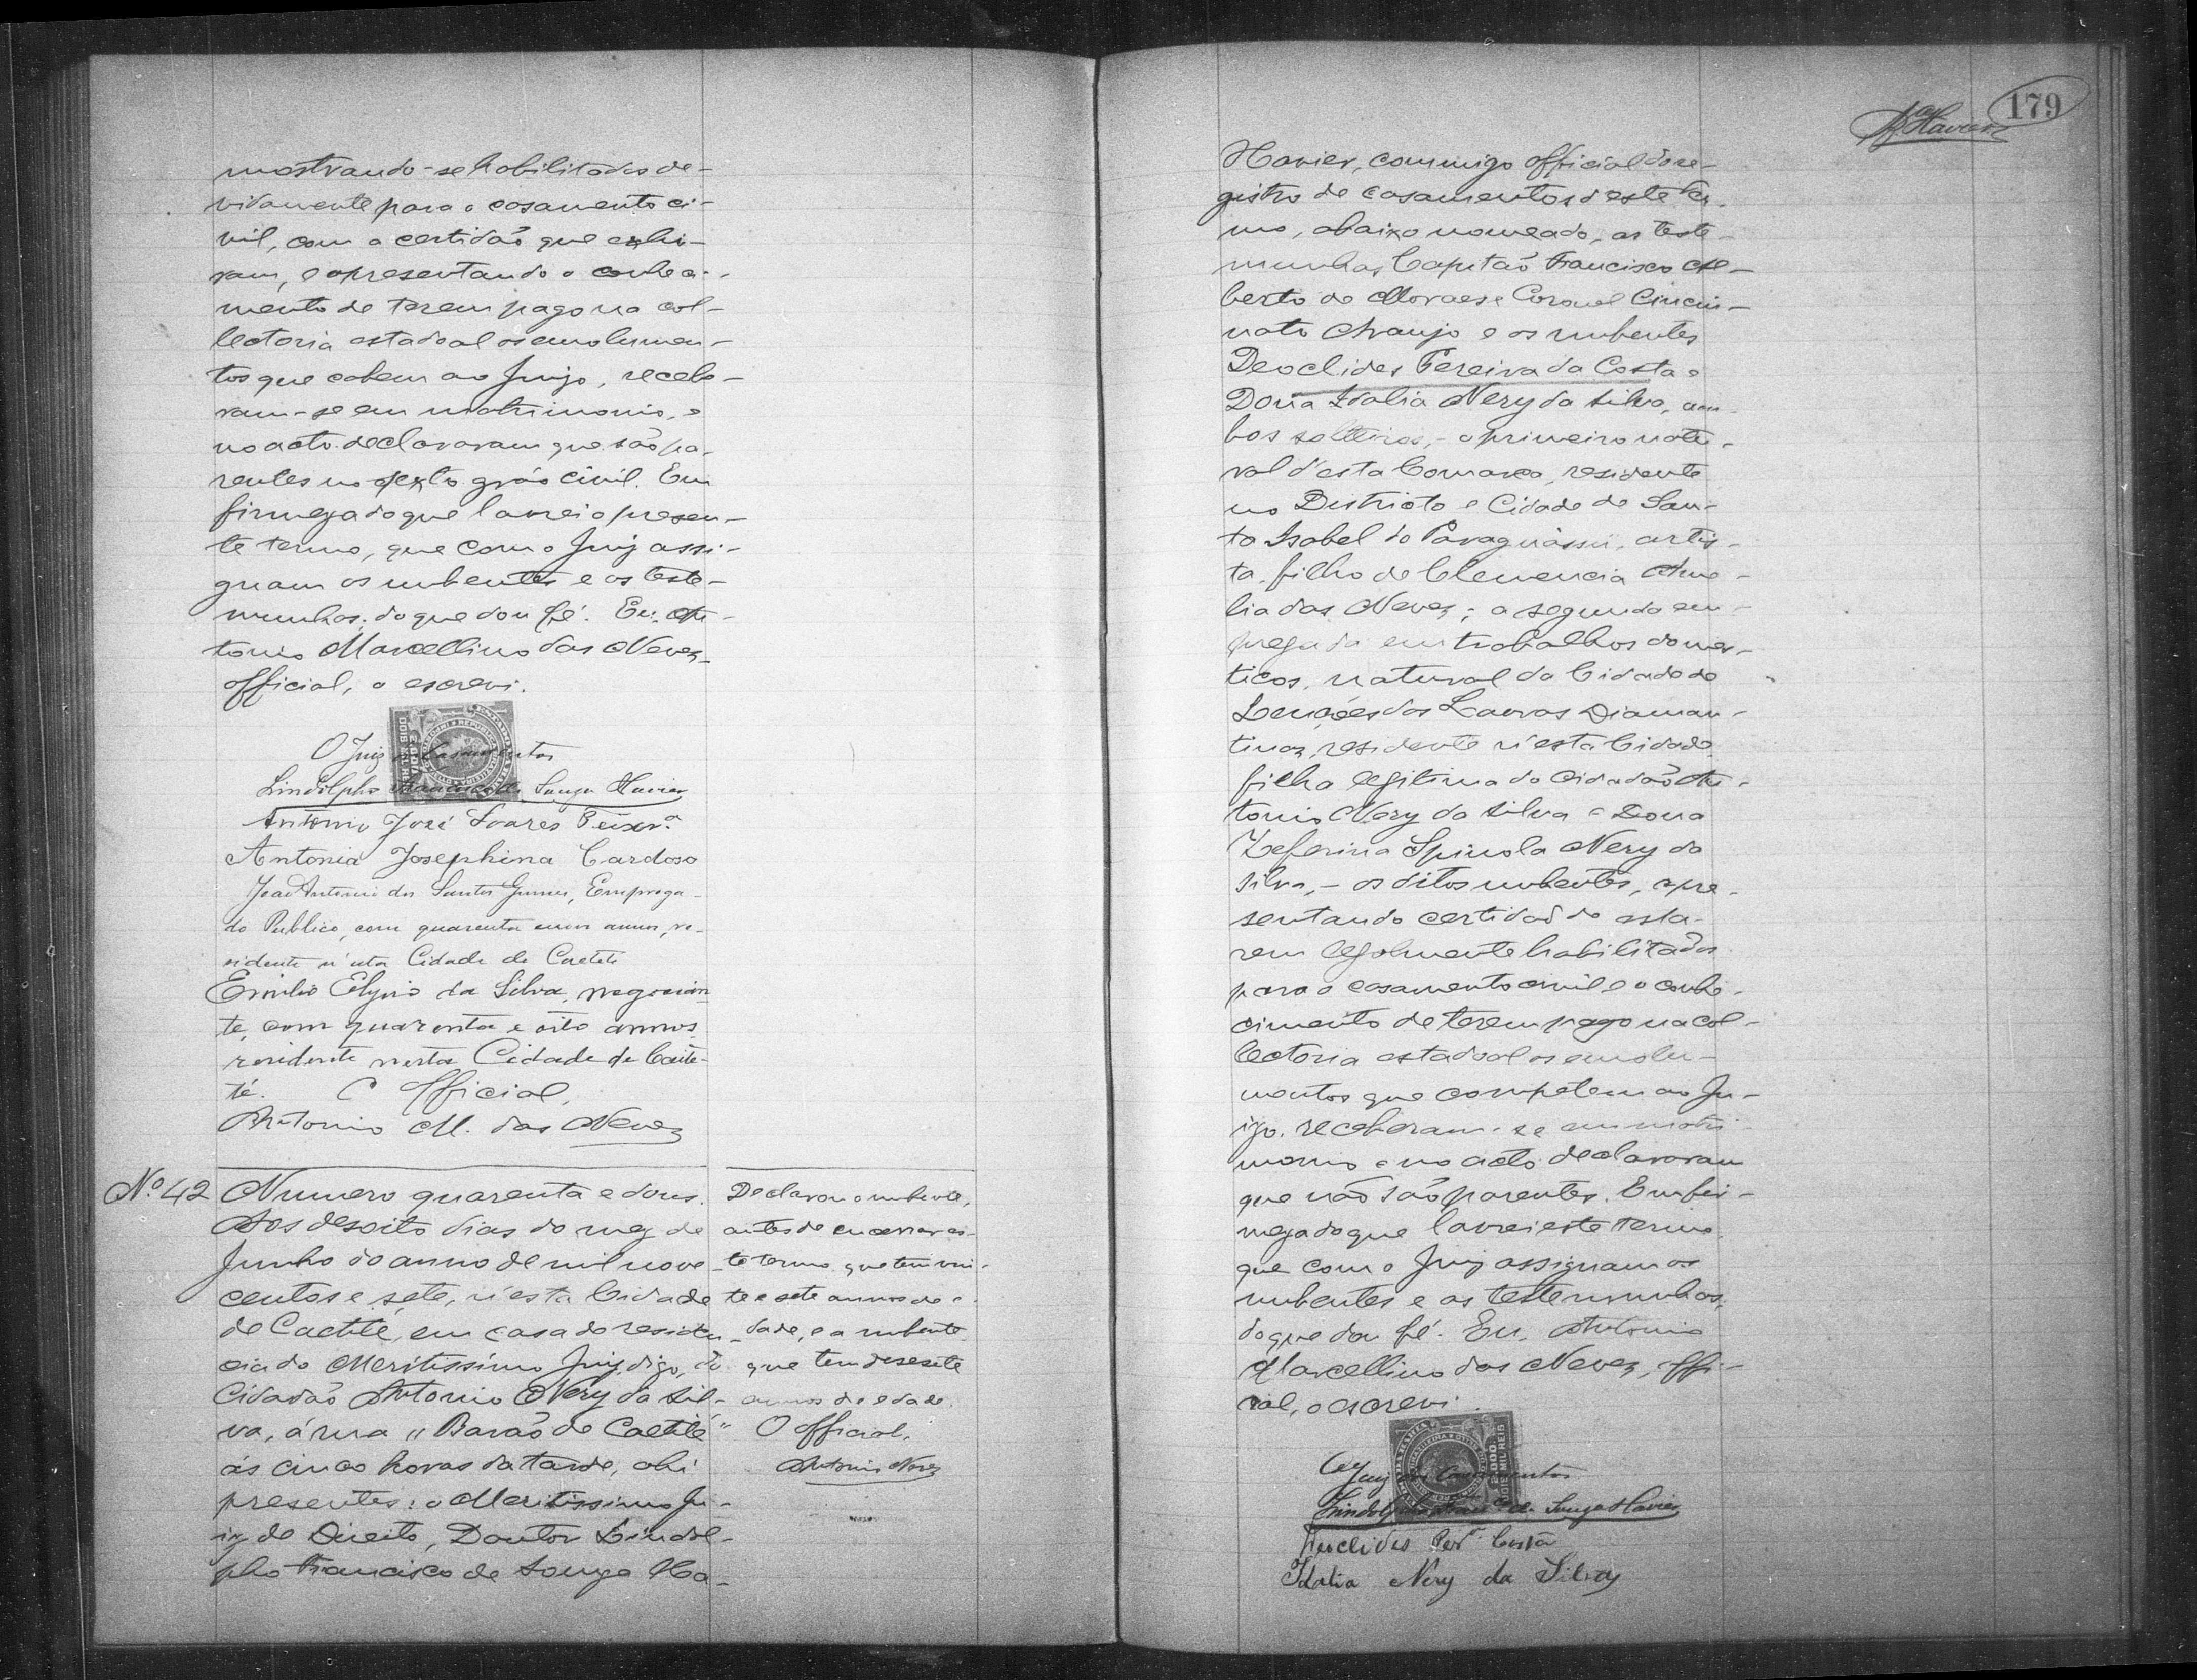 mostrando-se habilitados de-
vidamente para o casamento ci-
vil, com a certidão que exhi-
ram, e apresentando o conheci-
mento de terem pago na col-
lectoria estadoal os emolumen-
tos que cabem ao Juizo, recebe-
ram-se em matrimonio, e
no acto declararam que são pa-
rentes no sexto gráo civil. Em
firmeza do que lavrei o presen-
te termo, que com o Juiz assi-
gnam os nubentes e as teste-
munhas; do que dou fé. Eu, An-
tonio Marcellino das Neves,
official, o escrevi.
O Juiz Casamentos
Lindolpho Francisco de Souza Havier
Antonio José Soares
Antonia Josephina Cardoso
João Antonio dos Santos Gumes, Emprega-
do Publico, com quarenta annos, re-
sidente n'esta Cidade de Caeteté
Emilio Elysio da Silva, negocian-
te, com quarenta e oito annos
residente nesta Cidade de Caite-
té. O Official,
Antonio M. das Neves
Nº 42 Numero quarenta e dous.
Aos desoito dias do mez de
Junho do anno de mil nove
centos e sete, n'esta Cidade
de Caetité, em casa de residen-
cia do Meritissimo Juiz, digo, do
Cidadão Antonio Nery da Sil-
va, á rua "Barão de Caetité"
ás cinco horas da tarde, ahi
presentes: o Meritissimo Ju-
iz de Direito, Doutor Lindol-
pho Francisco de Souza Ha-
Declarou o nubente,
antes de encerrar es-
te termo, que tem vin-
te e sete annos de e-
dade, e a nubente
que tem desesete
annos de edade.
O Official,
Antonio Neves
179
Havier, commigo official do re-
gistro de casamentos d'este ter-
mo, abaixo nomeado, as teste-
munhas Capitão Francisco Al-
berto de Moraes e Coronel Cincin-
nato Araujo e os nubentes
Deoclides Pereira da Costa e
Dona Idalia Nery da Silva, am-
bos solteiros, - o primeiro natu-
ral d'esta Comarca, residente
no Districto e Cidade de San-
ta Isabel do Paraguassú, artis-
ta, filho de Clemencia Ame-
lia das Neves; a segunda em-
pregada em trabalhos domes-
ticos, natural da Cidade de
Lençóes das Lavras Diaman-
tinas, residente n'esta Cidade
filha legitima do Cidadão An-
tonio Nery da Silva e Dona
Zeferina Spinola Nery da
Silva, - os ditos nubentes, apre-
sentando certidão de esta-
rem legalmente habilitados
para o casamento civil e o conhe-
cimento de terem pago na col-
lectoria estadoal os emolu-
mentos que competem ao Ju-
izo, receberam-se em matri-
monio e no acto declararam
que não são parentes. Em fir-
meza do que lavrei este termo
que com o Juiz assignam os
nubentes e as testemunhas,
do que dou fé. Eu, Antonio
Marcellino das Neves, offi-
cial, o escrevi.
O Juiz dos Casamentos
Lindolpho Franco de Souza Havier
Deoclides Perª Costa
Idalia Nery da Silva